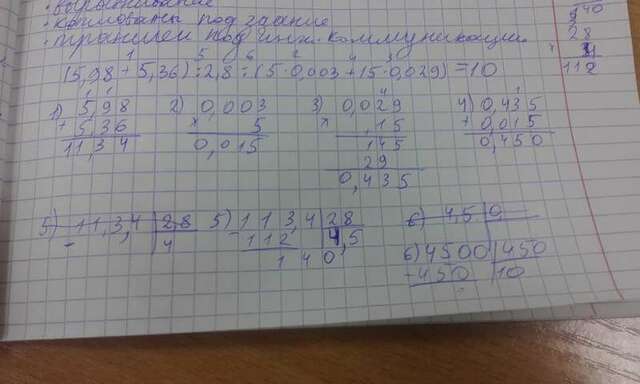 · котлованы под здание
· траншеи под инж. коммуникации
1 5 6 2 4 3
(5,98 + 5,36) : 2,8 : (5·0,003 + 15·0,029) = 10
28
112
1) 5,98 + 5,36 11,34
2) 0,003 × 5 0,015
3) 0,029 × 15 145 29 0,435
4) 0,435 + 0,015 0,450
5) 11,3,4 2,8 4
5) 113,4 28 - 112 4,5 140
6) 4,5 0
6) 4500 450 - 450 10